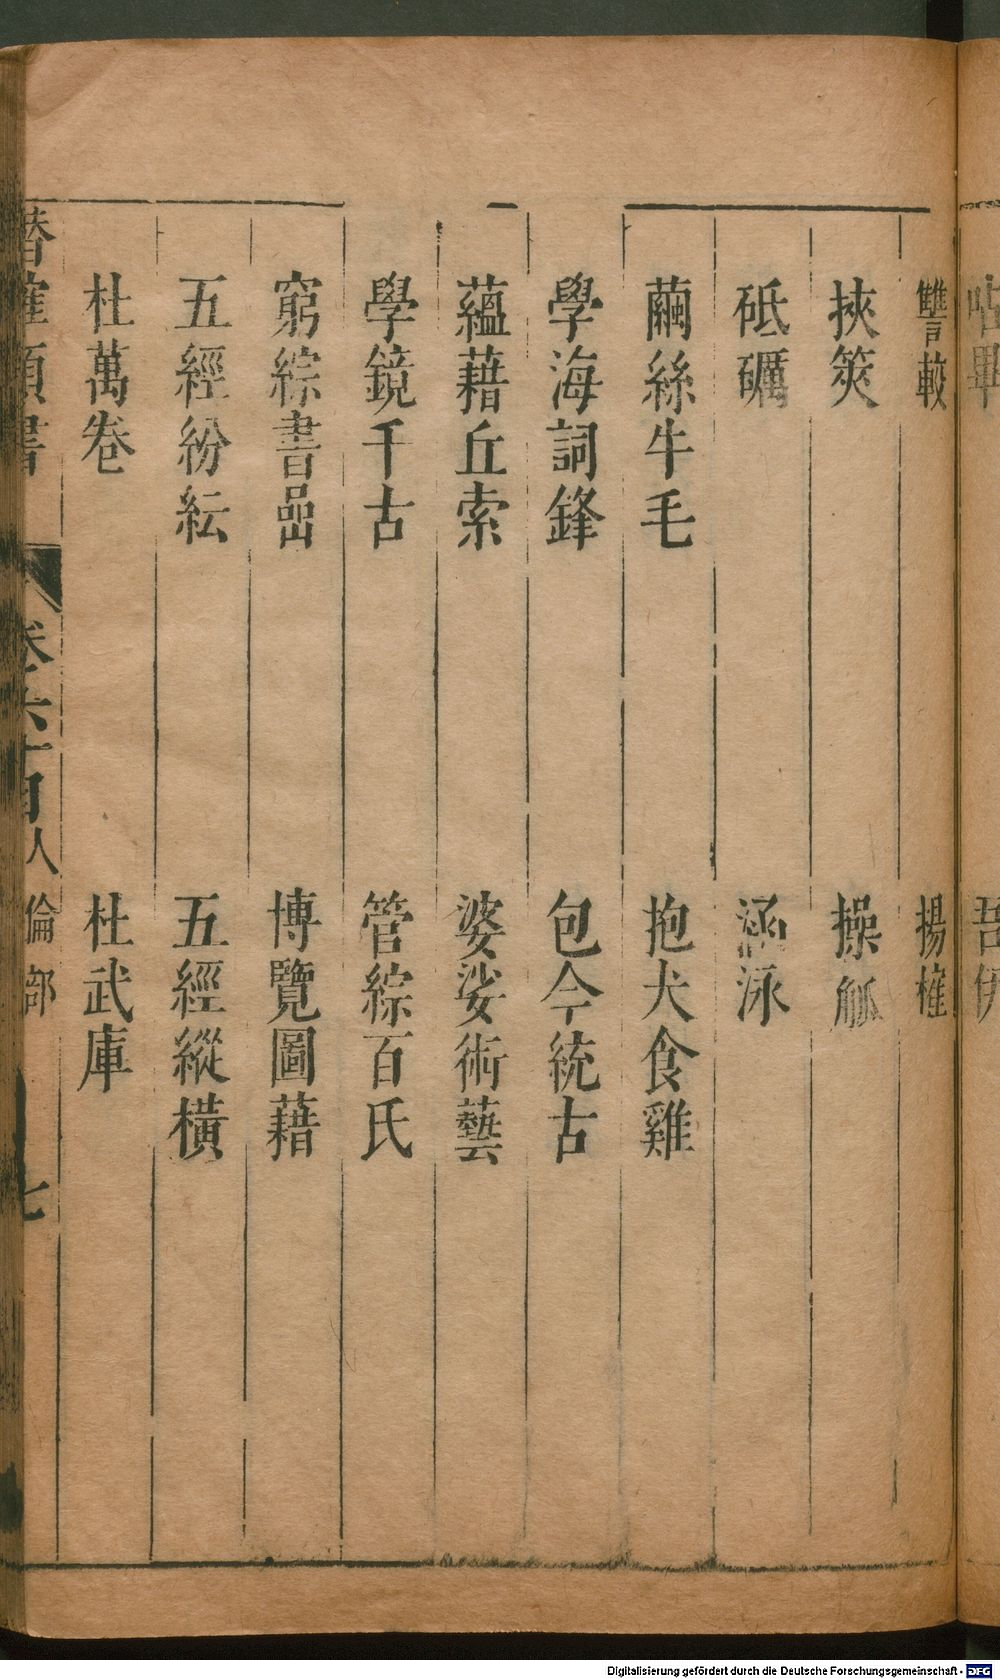 讐較　揚榷
挾筴　操觚
砥礪　涵泳
繭絲牛毛　抱犬食雞
學海詞鋒　包今統古
蘊藉丘索　婆娑術藝
學鏡千古　管綜百氏
窮綜書嵒　博覽圖藉
五經紛紜　五經縱橫
杜萬卷　杜武庫
卷六十四　人倫部　七
Digitalisierung gefördert durch die Deutsche Forschungsgemeinschaft - DFG